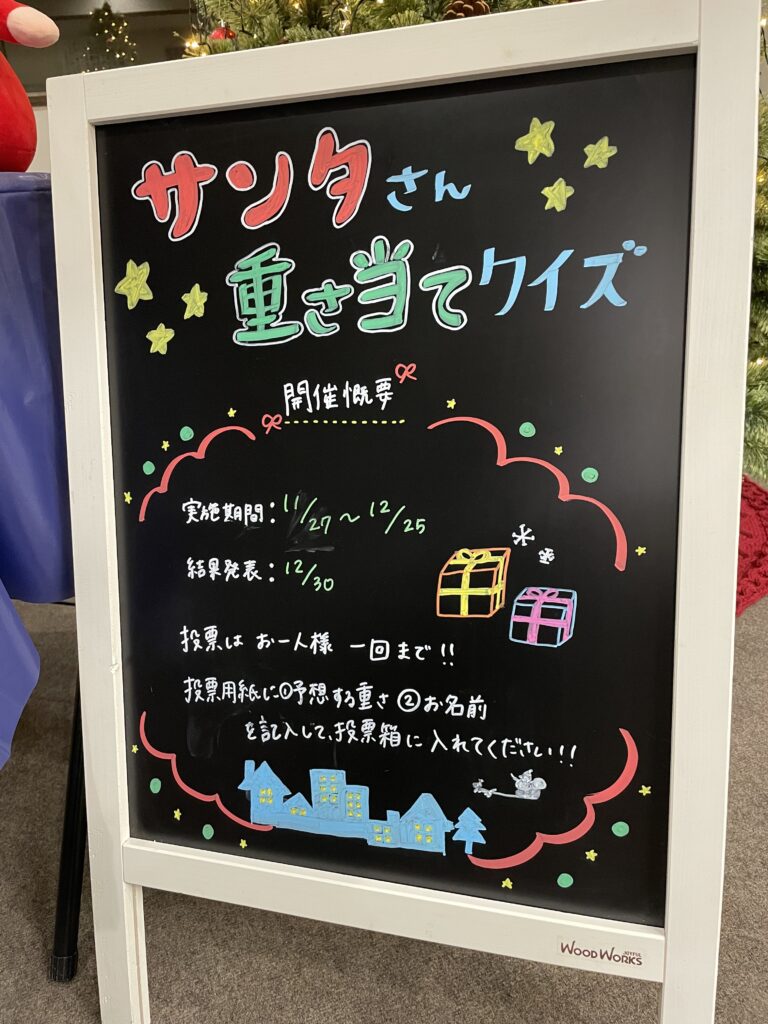 サンタさん
重さ当てクイズ
開催概要
実施期間：11/27〜12/25
結果発表：12/30
投票は お一人様 一回まで!!
投票用紙に①予想する重さ ②お名前
を記入して、投票箱に入れてください!!
JOYFUL
WOOD WORKS